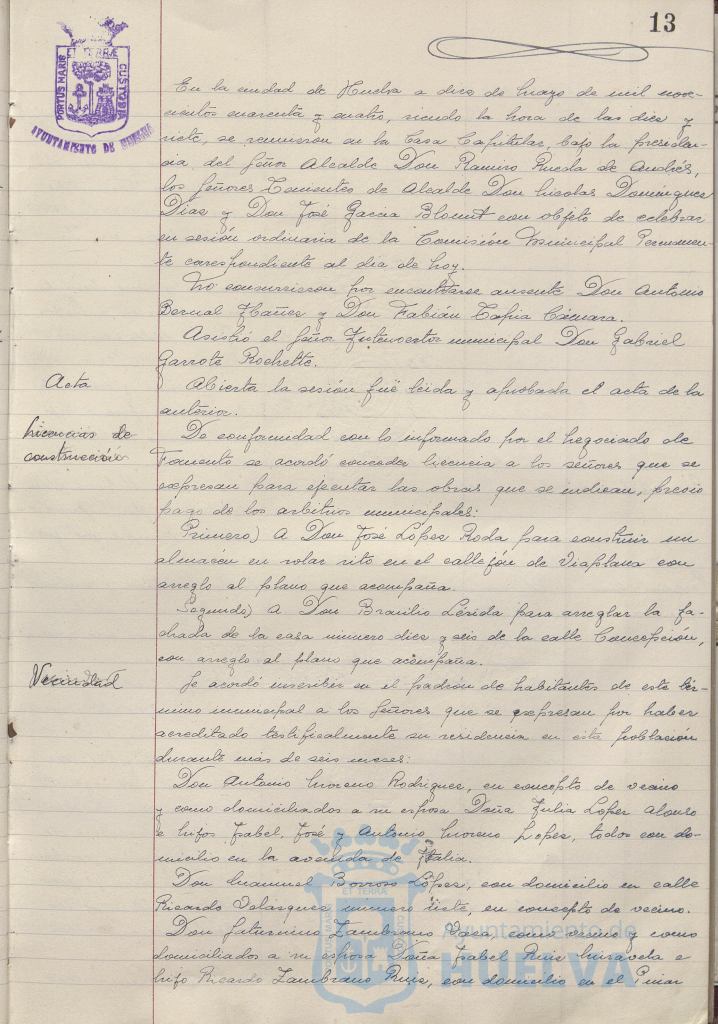 13
PORTUS MARIS ET TERRÆ CUSTODIA
AYUNTAMIENTO DE HUELVA
En la ciudad de Huelva a diez de Mayo de mil nove-
cientos cuarenta y cuatro, siendo la hora de las diez y
siete, se reunieron en la Casa Capitular, bajo la presiden-
cia del Señor Alcalde Don Ramiro Rueda de Andrés,
los Señores Tenientes de Alcalde Don Nicolas Dominguez
Diaz y Don José Garcia Blount con objeto de celebrar
en sesión ordinaria de la Comisión Municipal Permanen-
te correspondiente al dia de hoy.
No concurrieron por encontrarse ausente Don Antonio
Bernal Ibañez y Don Fabián Tapia Cámara.
Asistió el Señor Interventor municipal Don Gabriel
Garrote Rochette.
Acta
Abierta la sesión fué leida y aprobada el acta de la
anterior.
Licencias de
construcción
De conformidad con lo informado por el Negociado de
Fomento se acordó conceder licencia a los señores que se
expresan para ejecutar las obras que se indican, previo
pago de los arbitrios municipales:
Primero) A Don José López Roda para construir un
almacén en solar sito en el callejón de Viaplana con
arreglo al plano que acompaña.
Segundo) A Don Braulio Lérida para arreglar la fa-
chada de la casa numero diez y seis de la calle Concepción,
con arreglo al plano que acompaña.
Vecindad
Se acordó inscribir en el padrón de habitantes de este tér-
mino municipal a los Señores que se expresan por haber
acreditado testificalmente su residencia en esta población
durante más de seis meses:
Don Antonio Moreno Rodriguez, en concepto de vecino
y como domiciliados a su esposa Doña Julia Lopez Alonso
e hijos Isabel, José y Antonio Moreno Lopez, todos con do-
micilio en la avenida de Italia.
Don Manuel Borroso López, con domicilio en calle
Ricardo Velázquez numero siete, en concepto de vecino.
Don Saturnino Zambrano como vecino y como
domiciliados a su esposa Doña Isabel Ruiz e
hijo Ricardo Zambrano Ruiz, con domicilio en el Pinar
Ayuntamiento de
HUELVA